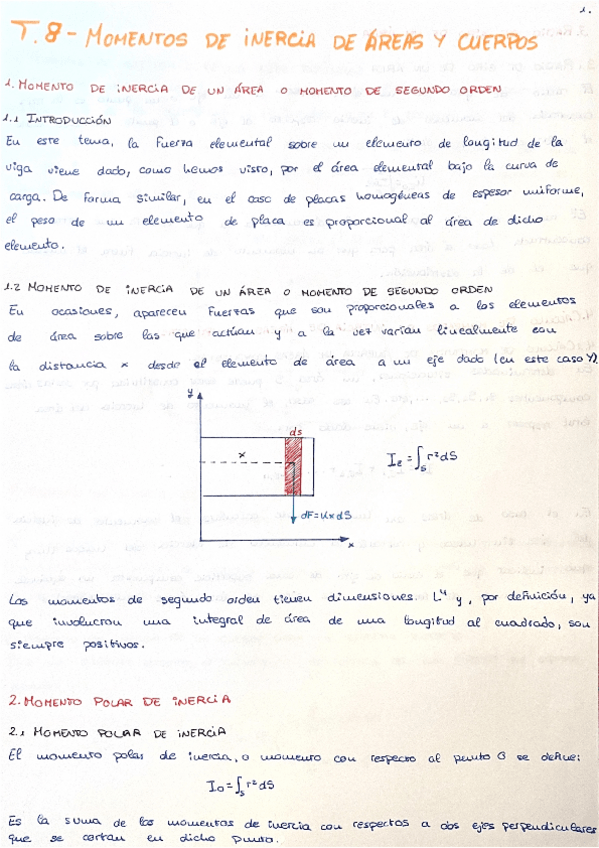 1.
T.8 - MOMENTOS DE INERCIA DE ÁREAS Y CUERPOS
1. MOMENTO DE INERCIA DE UN ÁREA O MOMENTO DE SEGUNDO ORDEN
1.1 INTRODUCCIÓN
En este tema, la fuerza elemental sobre un elemento de longitud de la
viga viene dado, como hemos visto, por el área elemental bajo la curva de
carga. De forma similar, en el caso de placas homogéneas de espesor uniforme,
el peso de un elemento de placa es proporcional al área de dicho
elemento.
1.2 MOMENTO DE INERCIA DE UN ÁREA O MOMENTO DE SEGUNDO ORDEN
En ocasiones, aparecen fuerzas que son proporcionales a los elementos
de área sobre las que actúan y a la vez varían linealmente con
la distancia x desde el elemento de área a un eje dado (en este caso Y).
y
ds
x
dF=KxdS
x
Ie = ∫s r²dS
Los momentos de segundo orden tienen dimensiones L⁴ y, por definición, ya
que involucran una integral de área de una longitud al cuadrado, son
siempre positivos.
2. MOMENTO POLAR DE INERCIA
2.1 MOMENTO POLAR DE INERCIA
El momento polar de inercia, o momento con respecto al punto O se define:
Io = ∫s r²dS
Es la suma de los momentos de inercia con respectos a dos ejes perpendiculares
que se cortan en dicho punto.